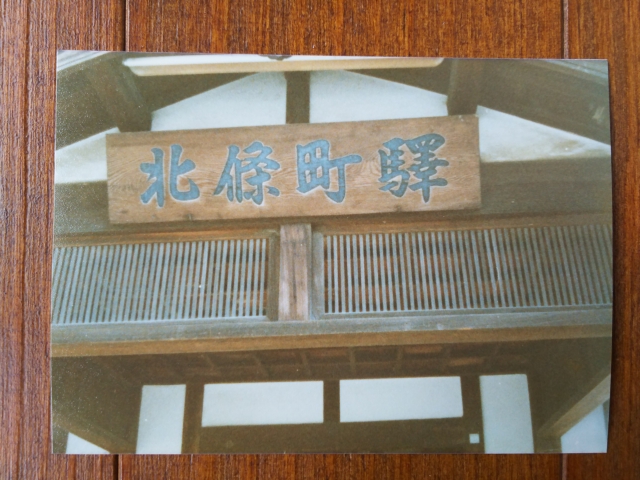 北條町驛